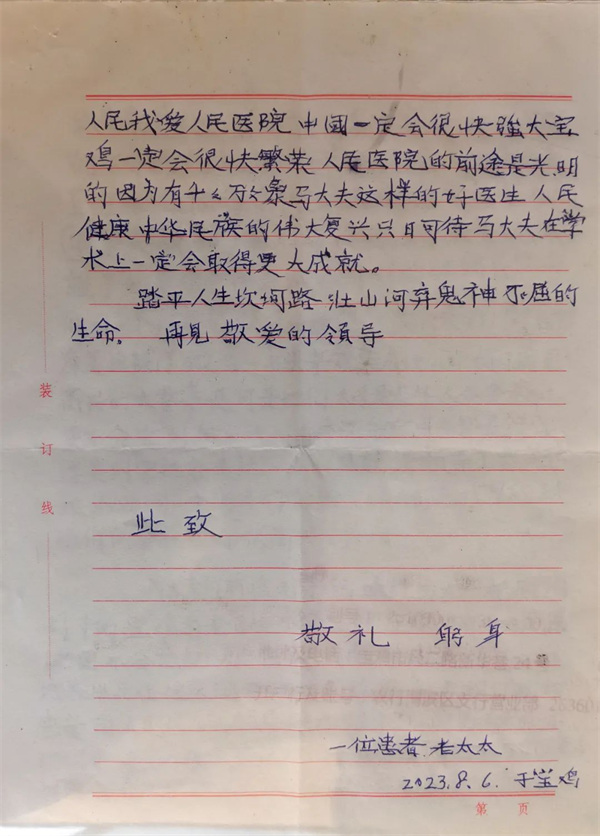 人民我爱人民医院 中國一定会很快強大宝
鸡一定会很快繁荣 人民医院的前途是光明
的因为有千千万万象马大夫这样的好医生 人民
健康 中华民族的伟大复兴只日可待马大夫在学
术上一定会取得更大成就。
踏平人生坎坷路 壮山河弃鬼神不屈的
生命. 再见 敬爱的領导
装
订
线
此致
敬礼 躬身
一位患者 老太太
2023.8.6. 于宝鸡
第 页